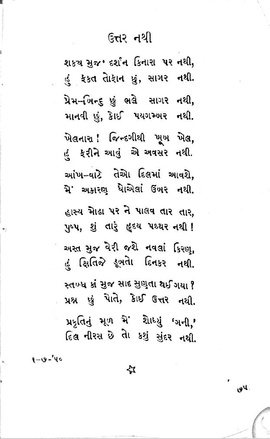 ઉત્તર નથી
શકચ મુજ દર્શન કિનારા પર નથી,
હું ફકત તોફાન છું, સાગર નથી.
પ્રેમ-બિન્દુ છું ભલે સાગર નથી,
માનવી છું, કોઈ પયગમ્બર નથી.
ખેલનારા! જિન્દગીથી ખૂબ ખેલ,
હું ફરીને આવું એ અવસર નથી.
આંખ-વાટે તેઓ દિલમાં આવશે,
મેં અકારણ ધોએલાં ઉંબર નથી.
હાસ્ય મોઢા પર ને પાલવ તાર તાર,
પુષ્પ, શું તારું હૃદય પથ્થર નથી!
અસ્ત મુજ વેરી જશે નવલાં કિરણ,
હું ક્ષિતિજે ડૂબતો દિનકર નથી.
સ્તબ્ધ કાં મુજ સાદ સુણતા થઈ ગયા?
પ્રશ્ન છું પોતે, કોઈ ઉત્તર નથી.
પ્રકૃતિનું મૂળ મેં શોધ્યું 'ગની,'
દિલ નીરસ છે તો કશું સુંદર નથી.
૧-૭-'૫૦
૭૫